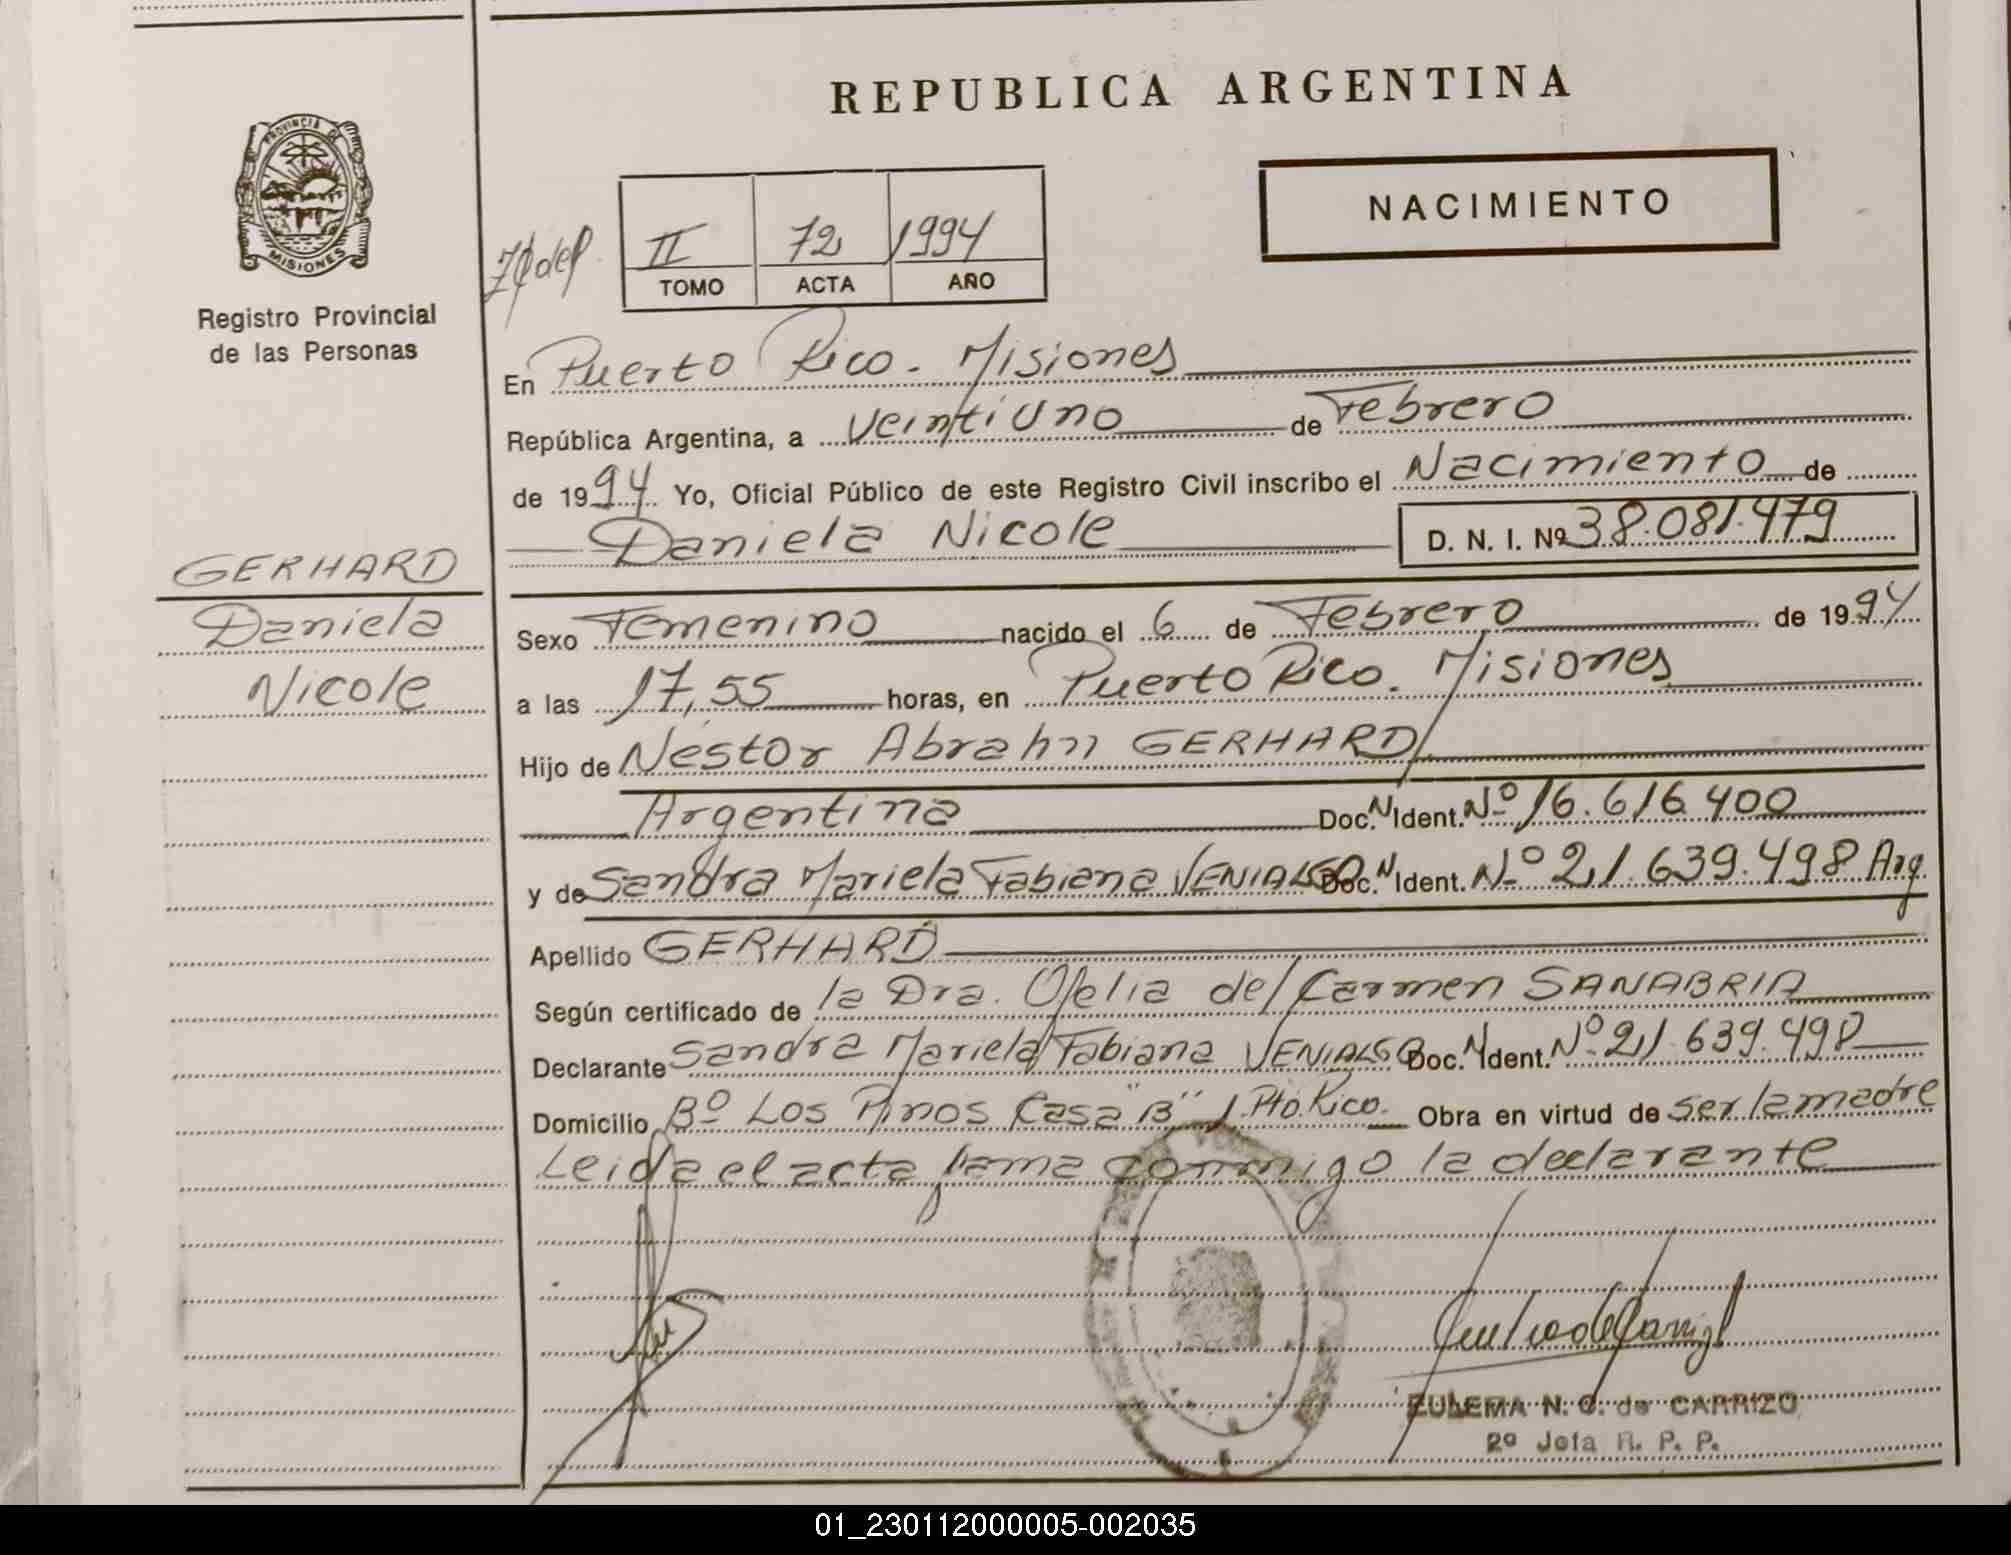 REPUBLICA ARGENTINA
NACIMIENTO
PROVINCIA DE
MISIONES
Registro Provincial
de las Personas
II 72 1994
TOMO ACTA AÑO
En Puerto Rico. Misiones
República Argentina, a veintiuno de Febrero
de 1994 Yo, Oficial Público de este Registro Civil inscribo el Nacimiento de
Daniela Nicole D. N. I. Nº 38.081.479
GERHARD
Daniela
Nicole
Sexo Femenino nacido el 6 de Febrero de 1994
a las 17,55 horas, en Puerto Rico. Misiones
Hijo de Nestor Abrahn GERHARD
Argentina Doc. N. Ident. Nº 16.616.400
y de Sandra Mariela Fabiana VENIALGO Doc. N. Ident. Nº 21.639.498 Arg.
Apellido GERHARD
Según certificado de la Dra. Ofelia del Carmen SANABRIA
Declarante Sandra Mariela Fabiana VENIALGO Doc. N. Ident. Nº 21.639.498
Domicilio Bº Los Pinos Casa "B" Pto. Rico. Obra en virtud de ser la madre
Leida el acta firma conmigo la declarante
ZULEMA N. C. de CARRIZO
2º Jefa R. P. P.
01_230112000005-002035